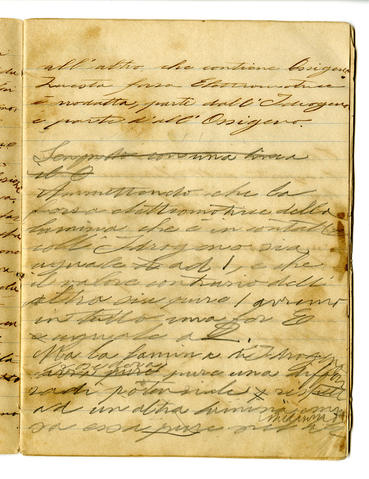 all'altro, che contiene Ossigeno
Questa forza Elettromotrice
è prodotta, parte dall'Idrogeno
e parte dall'Ossigeno.
con una linea
il
Ammettendo che la
forza elettromotrice della
lamina che è in contatto
coll'Idrogeno sia
eguale ad 1, e che
il valore contrario dell'
altra sia pure 1 avremo
in tutto una for E
eguale a 2.
Ma la lamina d'Idrogeno
pure una
di potenziale rispetto
ad un'altra lamina
sa essa pure